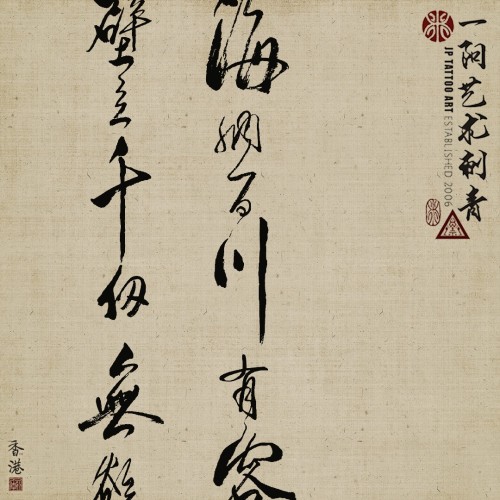 一阿艺术刺青
JP TATTOO ART ESTABLISHED 2006
海納百川有容
壁立千仞無欲
香港